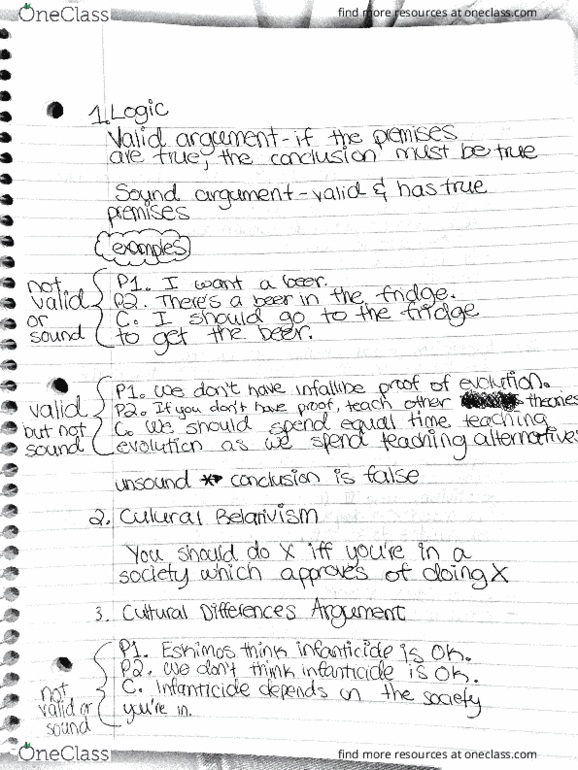 OneClass
find more resources at oneclass.com
1. Logic
Valid argument - if the premises
are true, the conclusion must be true
Sound argument - valid & has true
premises
examples
not
valid
or
sound
P1. I want a beer.
P2. There's a beer in the fridge.
C. I should go to the fridge
to get the beer.
valid
but not
sound
P1. We don't have infallibe proof of evolution.
P2. If you don't have proof, teach other theories
C. We should spend equal time teaching
evolution as we spend teaching alternatives
unsound conclusion is false
2. Culural Relativism
You should do X iff you're in a
society which approves of doing X
3. Cultural Differences Argument
not
valid or
sound
P1. Eskimos think infanticide is OK.
P2. We don't think infanticide is OK.
C. Infanticide depends on the society
you're in.
OneClass
find more resources at oneclass.com